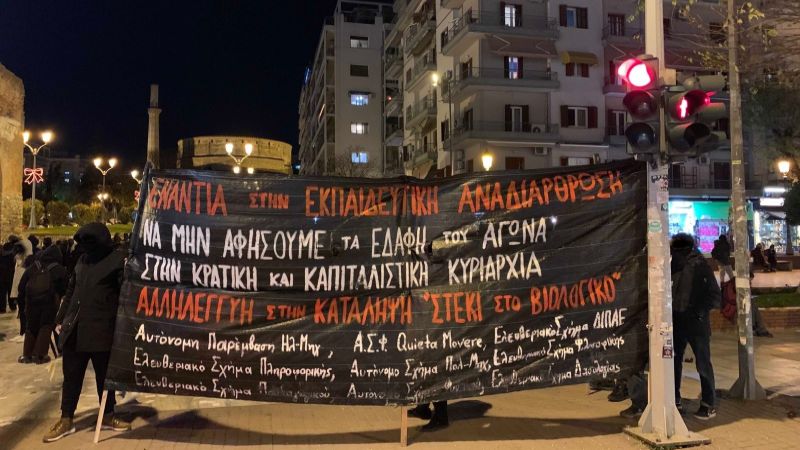 ΕΝΑΝΤΙΑ ΣΤΗΝ ΕΚΠΑΙΔΕΥΤΙΚΗ ΑΝΑΔΙΑΡΘΡΩΣΗ
ΝΑ ΜΗΝ ΑΦΗΣΟΥΜΕ ΤΑ ΕΔΑΦΗ ΤΟΥ ΑΓΩΝΑ
ΣΤΗΝ ΚΡΑΤΙΚΗ ΚΑΙ ΚΑΠΙΤΑΛΙΣΤΙΚΗ ΚΥΡΙΑΡΧΙΑ
ΑΛΛΗΛΕΓΓΥΗ ΣΤΗΝ ΚΑΤΑΛΗΨΗ "ΣΤΕΚΙ ΣΤΟ ΒΙΟΛΟΓΙΚΟ"
Αυτόνομη Παρέμβαση Ηλ-Μηχ, Α.Σ.Φ Quieta Movere, Ελευθεριακό Σχήμα ΔΙΠΑΕ
Ελευθεριακό Σχήμα Πληροφορικής, Αυτόνομο Σχήμα Πολ-Μηχ, Ελευθεριακό Σχήμα Φιλοσοφικής
Ελευθεριακό Σχήμα Αυτόνομο Σχήμα Ελευθεριακό Σχήμα